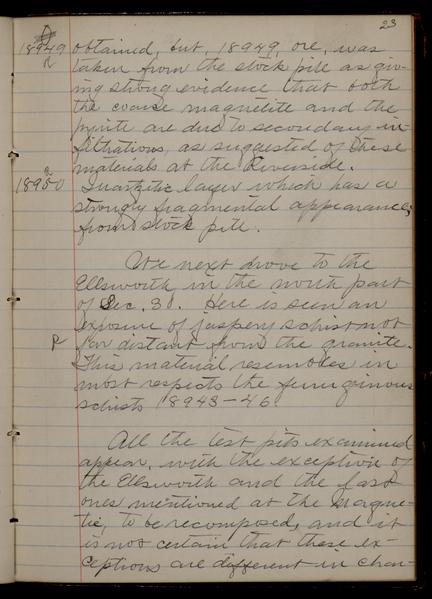 23
18949 obtained, but, 18949, ore, was
taken from the stock pile as giv-
ing strong evidence that both
the coarse magnetite and the
pyrite are due to secondary in-
filtrations, as suggested of these
materials at the Riverside.
18950 Quartzitic layer which has a
strongly fragmental appearance;
from stock pile.
We next drove to the
Ellsworth in the north part
of Sec. 30. Here is seen an
exposure of jaspery schist not
far distant from the granite.
This material resembles in
most respects the ferruginous
schists 18943-46.
All the test pits examined
appear, with the exception of
the Ellsworth and the last
ones mentioned at the Magne-
tic, to be recomposed, and it
is not certain that these ex-
ceptions are different in char-